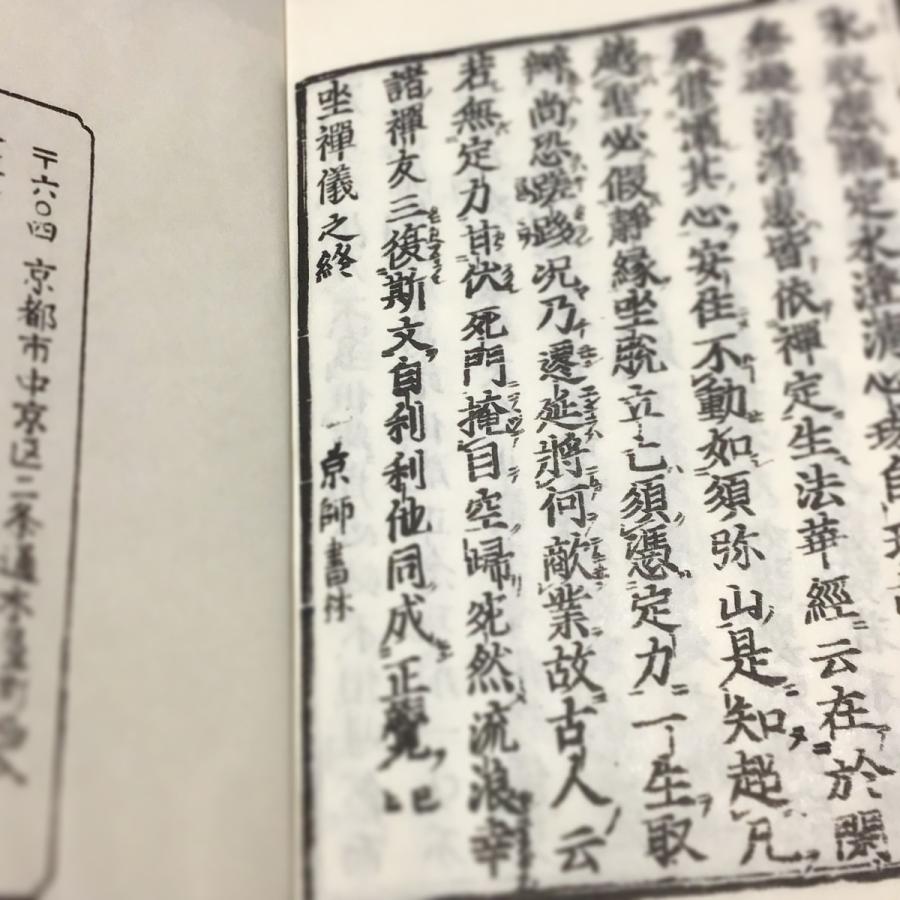 定水澄清心珠自現
無礙清淨慧皆依禪定生法華經云在於閑
處修攝其心安住不動如須弥山是知超凡
越聖必假靜緣坐脫立亡須憑定力一生取
辦尚恐蹉跎况乃遷延將何敵業故古人云
若無定力甘伏死門掩目空歸宛然流浪幸
諸禪友三復斯文自利利他同成正覺
坐禪儀之終 京師書林
〒六〇四 京都市中京区二条通木屋町西入